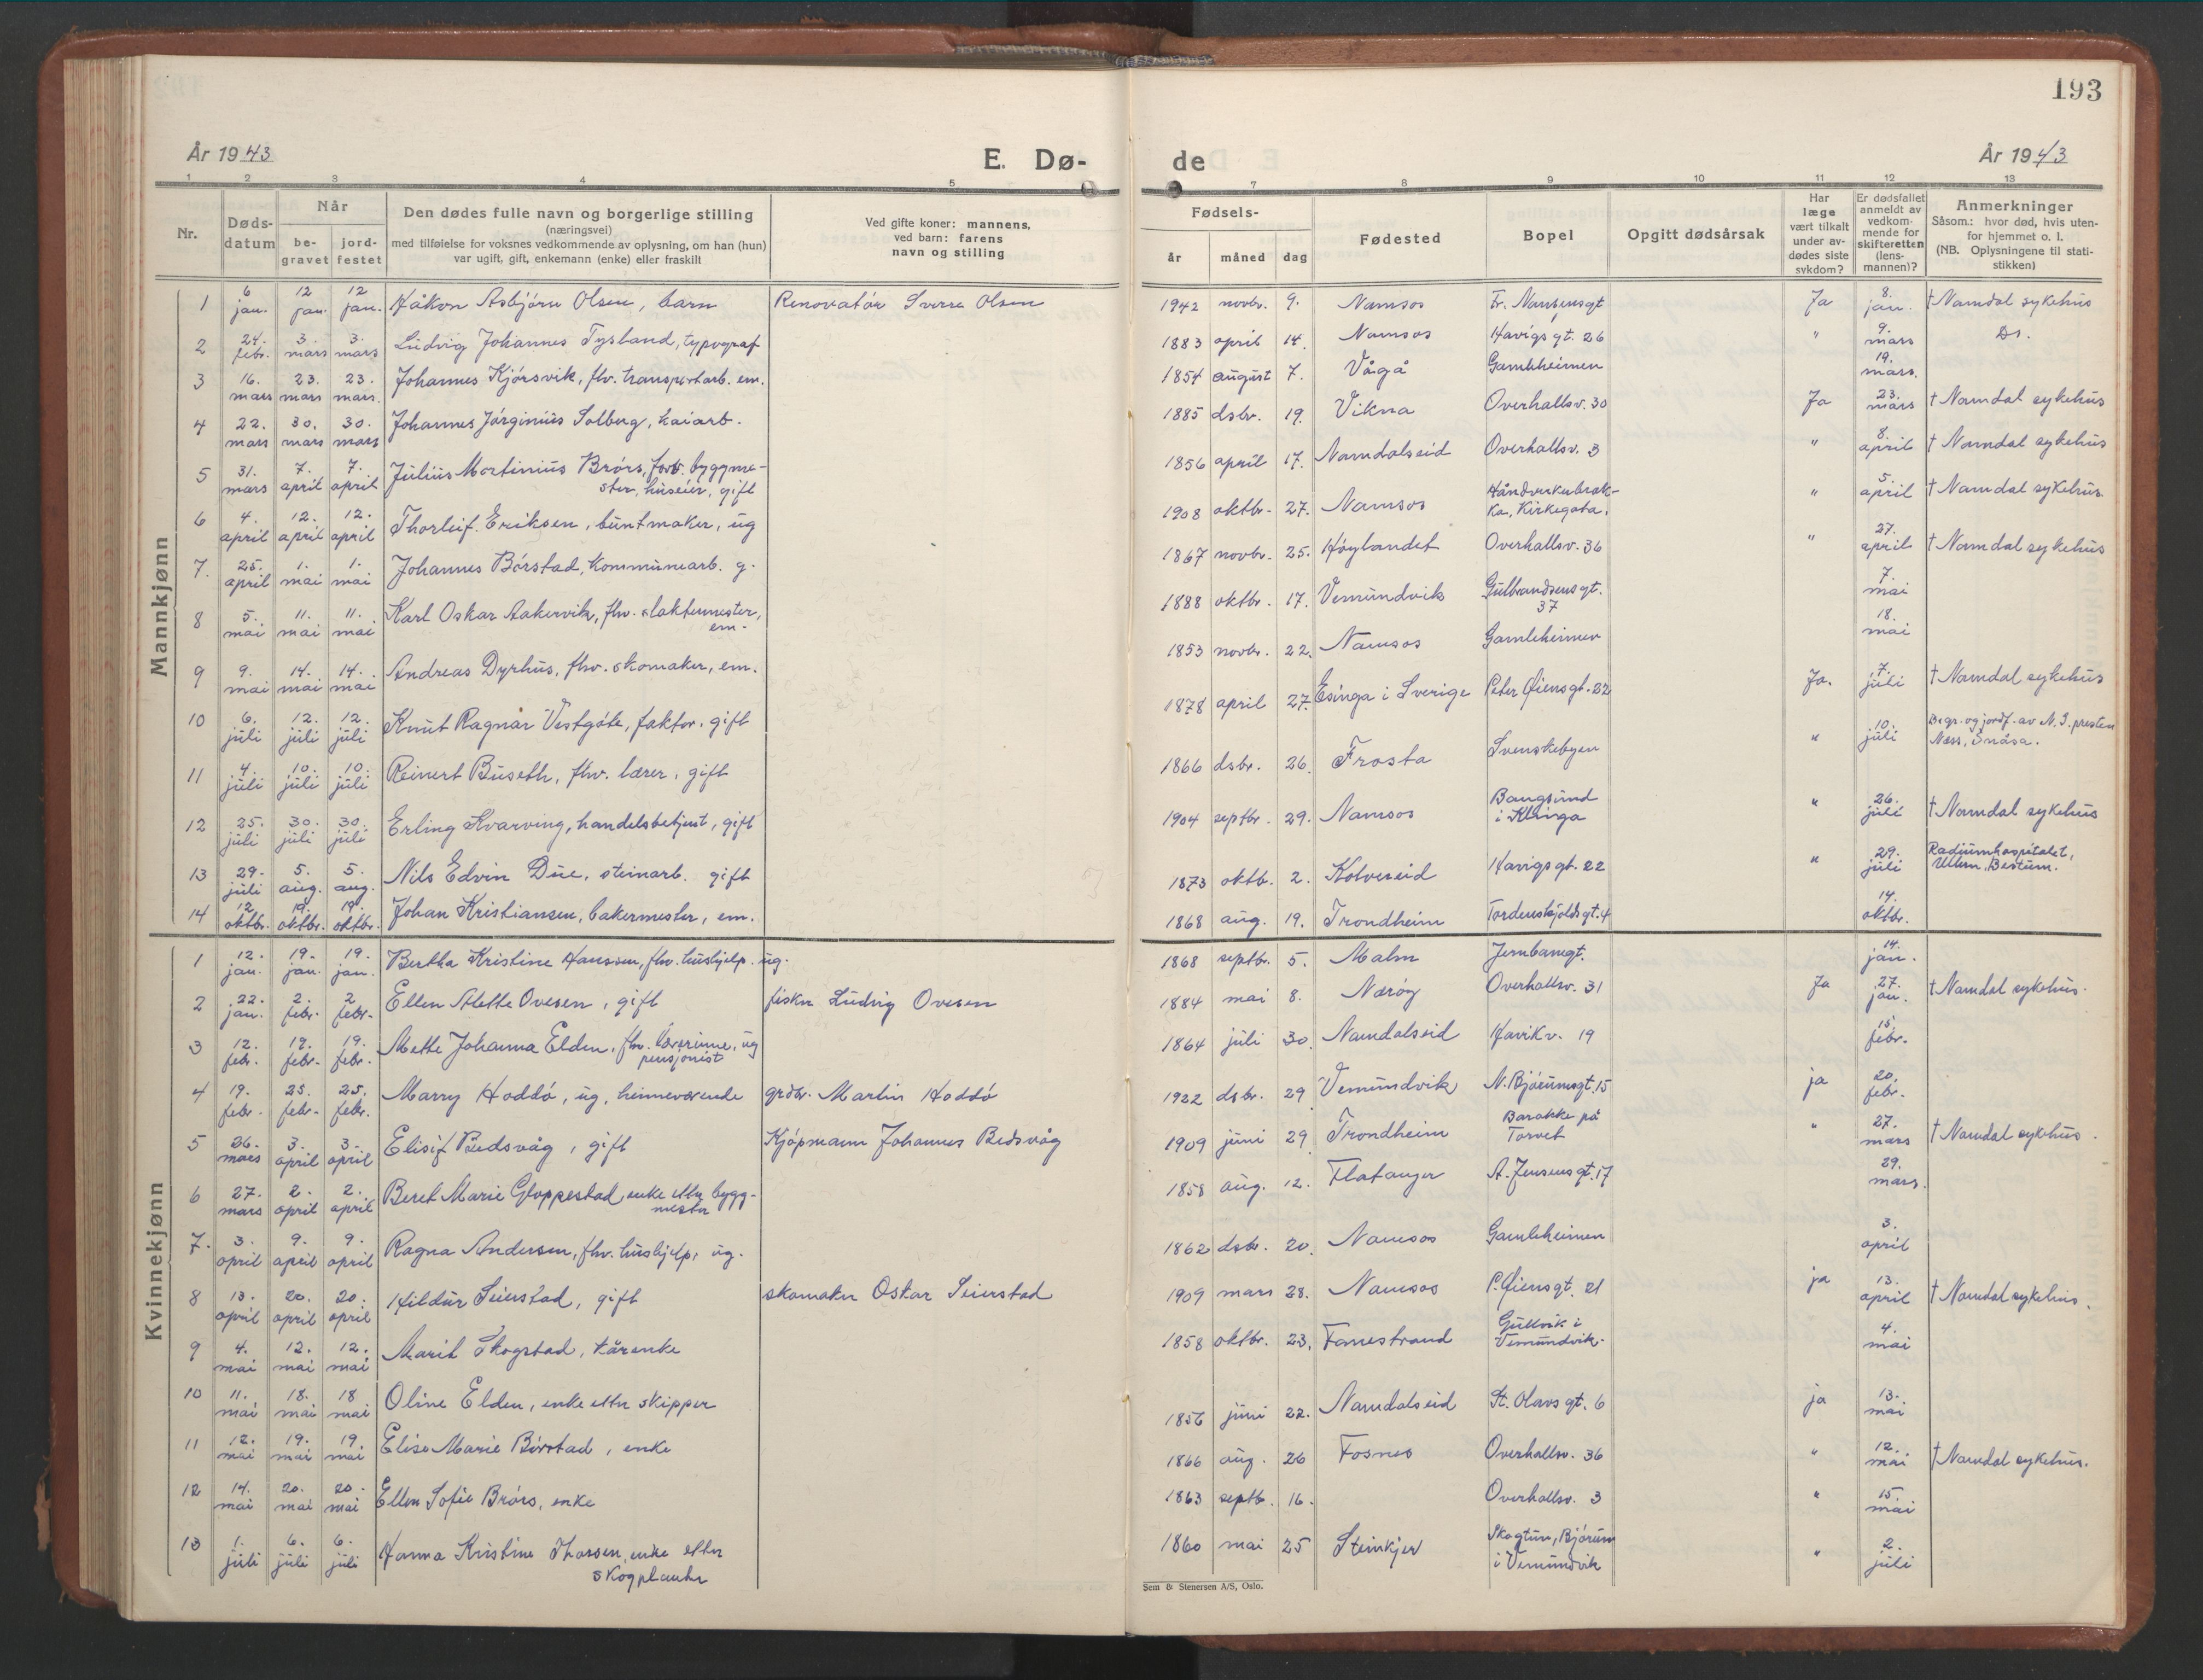 193
År 1943
E. Dø-
de
År 1943
1 2 3 4 5
7 8 9 10 11 12 13
Nr.
Døds-
datum
Når
be-
gravet
jord-
festet
Den dødes fulle navn og borgerlige stilling
(næringsvei)
med tilføielse for voksnes vedkommende av oplysning, om han (hun)
var ugift, gift, enkemann (enke) eller fraskilt
Ved gifte koner: mannens,
ved barn: farens
navn og stilling
Fødsels-
år måned dag
Fødested
Bopel
Opgitt dødsårsak
Har
læge
vært tilkalt
under av-
dødes siste
sykdom?
Er dødsfallet
anmeldt av
vedkom-
mende for
skifteretten
(lens-
mannen)?
Anmerkninger
Såsom.: hvor død, hvis uten-
for hjemmet o. l.
(NB. Oplysningene til stati-
stikken)
Mannkjønn
1 6 jan. 12 jan. 12 jan. Håkon Asbjørn Olsen, barn Renovatør Sverre Olsen 1942 novbr. 9. Namsos Fr. Nansensgt Ja 8. jan. † Namdal sykehus
2 24. febr. 3. mars 3. mars Ludvig Johannes Tysland, typograf 1883 april 14. Namsos Havigs gt. 26 " 9. mars Do.
3 16. mars 23. mars 23. mars. Johannes Kjørsvik, fhv. transportarb. em. 1854 august 7. Vågå Gamleheimen 19. mars.
4 22. mars 30. mars 30. mars Johannes Jørginius Solberg, kaiarb. 1885 dsbr. 19. Vikna Overhallsv. 30 Ja 23. mars † Namdal sykehus
5 31. mars 7. april 7. april Julius Martinius Brørs, forv. byggme-
ster, huseier, gift 1856 april 17. Namdalseid Overhallsv. 3 " 8. april † Namdal sykehus
6 4. april 12. april 12. april Thorleif Eriksen, buntmaker, ug 1908 oktbr. 27. Namsos Håndverkerbrak-
ka, Kirkegata. " 5. april † Namdal sykehus
7. 25. april 1. mai 1. mai Johannes Børstad, kommunearb. g. 1867 novbr. 25. Høylandet Overhallsv. 36 " 27. april † Namdal sykehus
8 5. mai 11. mai 11. mai Karl Oskar Aakervik, fhv. slaktermester,
em. 1888 oktbr. 17. Vemundvik Gulbrandsens gt.
37 7. mai
9 9. mai 14. mai 14. mai Andreas Dyrhus, fhv. skomaker, em. 1853 novbr. 22. Namsos Gamleheimen 18. mai
10 6. juli 12. juli 12. juli Knut Ragnar Vestgöte, faktor, gift 1878 april 27. Esinga i Sverige Peter Øiensgt. 22 Ja. 7. juli † Namdal sykehus
11 4. juli 10. juli 10. juli Reinert Buseth, fhv. lærer, gift 1866 dsbr. 26. Frosta Svenskebyen " 10. juli Begr. og jordf. av N. S. presten
Næss, Snåsa.
12 25. juli 30. juli 30. juli Erling Kvarving, handelsbetjent, gift 1904 septbr. 29. Namsos Bangsund
i Klinga " 26. juli † Namdal sykehus
13 29. juli 5. aug. 5. aug. Nils Edvin Due, steinarb. gift 1873 oktb. 2. Kolvereid Havigs gt. 22 " 29. juli Radiumhospitalet,
Ullern, Bestum.
14 12 oktbr. 19. oktbr. 19. oktbr. Johan Kristiansen, bakermester, em. 1868 aug. 19. Trondheim Tordenskjolds gt. 4 14. oktbr.
Kvinnekjønn
1 12. jan. 19. jan. 19. jan. Bertha Kristine Hanssen, fhv. hushjelp. ug. 1868 septbr. 5. Malm Jernbanegt. 14. jan.
2 22. jan. 2. febr. 2 febr. Ellen Alette Ovesen, gift fisker Ludvig Ovesen 1884 mai 8. Nærøy Overhallsv. 31 Ja 27. jan. † Namdal sykehus.
3 12. febr. 19. febr. 19. febr. Mette Johanna Elden, fhv. lærerinne, ug
pensjonist 1864 juli 30. Namdalseid Havikv. 19 15. febr.
4 19. febr. 25. febr. 25. febr. Marry Hoddø, ug, hjemmeværende grdbr. Martin Hoddø 1922 dsbr. 29 Vemundvik N. Bjørumsgt. 15 ja 20. febr.
5 26. mars 3. april 3. april Elisif Bedsvåg, gift Kjøpmann Johannes Bedsvåg 1909 juni 29. Trondheim Barakke på
Torvet " 27. mars † Namdal sykehus.
6 27. mars 2. april 2. april Beret Marie Gloppestad enke etter bygg-
mester 1858 aug. 12. Flatanger A. Jensens gt. 17 29. mars.
7. 3. april 9. april 9. april Ragna Andersen, fhv. hushjelp, ug. 1862 dsbr. 20. Namsos Gamleheimen 3. april
8 13. april 20. april 20. april Hildur Seierstad, gift skomaker Oskar Seierstad 1909 mars 28. Namsos P. Øiensgt. 21 ja 13. april † Namdal sykehus.
9 4. mai 12. mai 12. mai Marit Skogstad, kårenke 1858 oktbr. 23. Fannestrand Gullvik i
Vemundvik. 4. mai
10 11. mai 18. mai 18 mai Oline Elden, enke etter skipper 1856 juni 22. Namdalseid St. Olavs gt. 6 ja 13. mai
11 12. mai 19. mai 19. mai Elise Marie Børstad, enke 1866 aug. 26 Fosnes Overhallsv. 36 " 12. mai † Namdal sykehus.
12 14. mai 20. mai 20. mai Ellen Sofie Brørs, enke 1863 septb. 16. Overhallsv. 3 " 15 mai
13 1. juli 6. juli 6. juli Hanna Kristine Thorsen, enke etter
skogplanter 1860 mai 25 Steinkjer Skogtun, Bjørum
i Vemundvik " 2. juli
Sem & Stenersen A/S, Oslo.